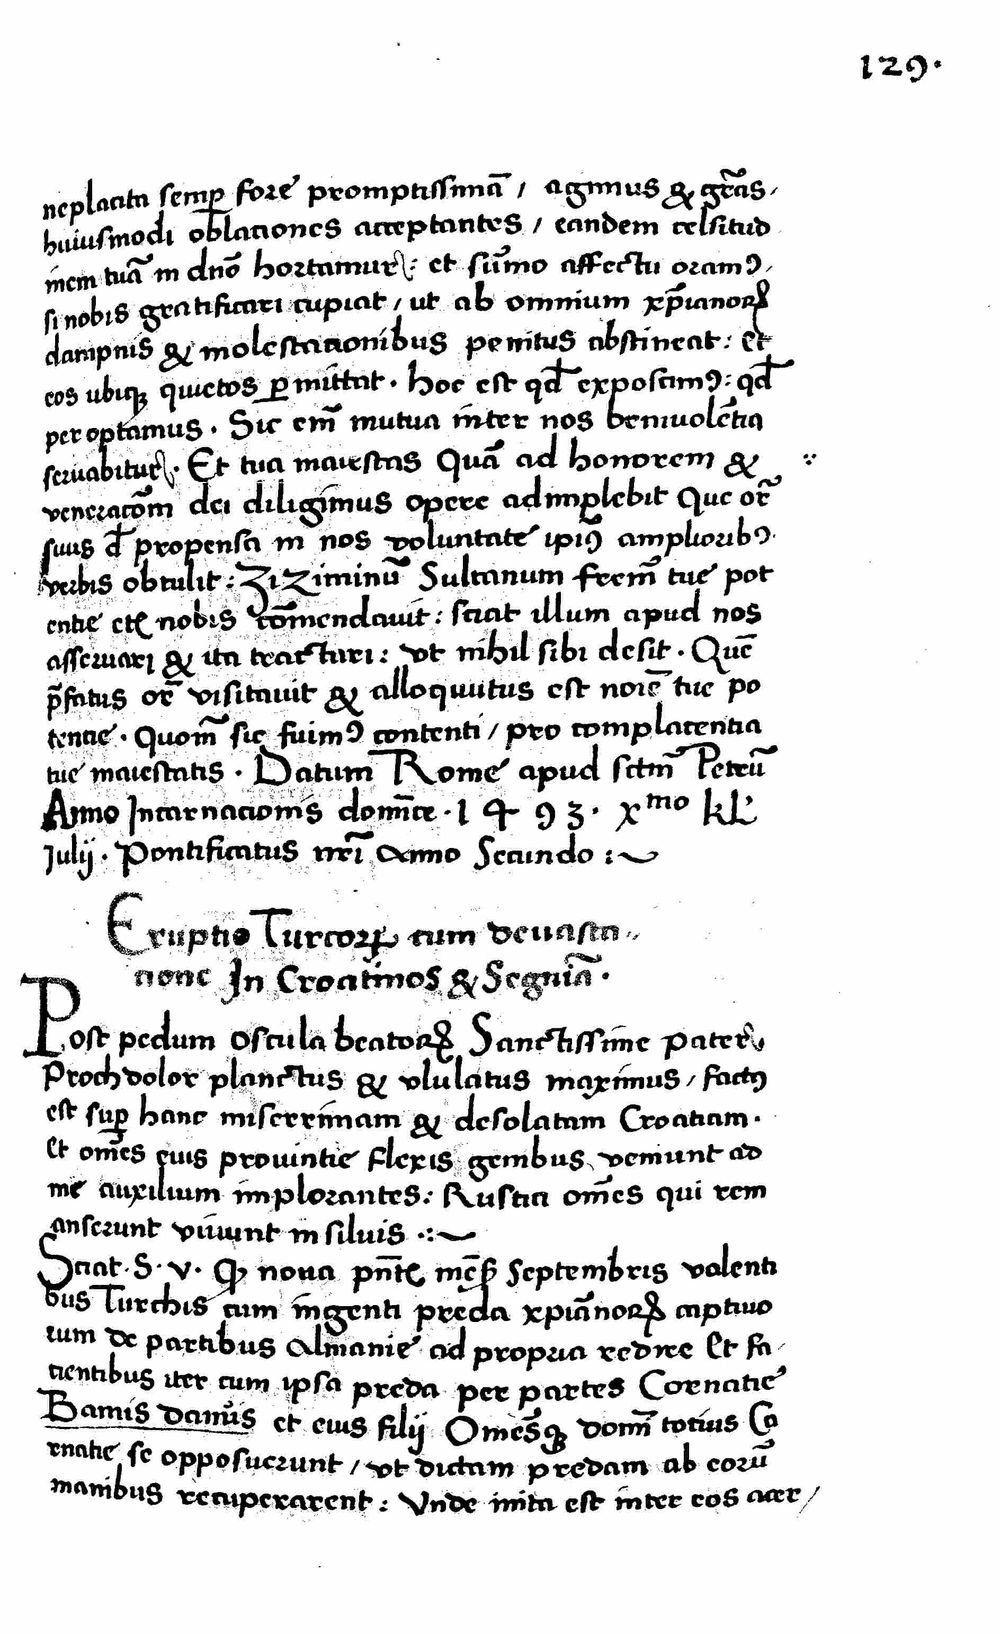 129.
neplacita semꝑ fore promptissimā / agimus & gr̃as,
huiusmodi oblaciones acceptantes / eandem celsitud
inem tuā in dn̄o hortamurꝭ: et sūmo affectu oramꝰ,
si nobis gratificari cupiat / ut ab omnium xp̄ianorꝝ
dampnis & molestacionibus penitus abstineat: Et
eos ubiqꝫ quietos ꝑmittat. Hoc est qd̄ exposcimꝰ: qd̄
per optamus. Sic em̄ mutua inter nos beniuolētia
seruabiturꝭ. Et tua maiestas Quā ad honorem &
veneracōm dei diligimus opere adimplebit Que or̃
suus d̄ propensa in nos voluntate ip̄iꝰ amplioribꝰ.
verbis obtulit: Ziziminū Sultanum frem̄ tue pot
entie etꝭ nobis cōmendauit: sciat illum apud nos
asseruari & ita tractari: vt nihil sibi desit. Quē
p̄fatus or̃ visitauit & alloquutus est noīe tue po
tentie. Quom̄ sic fuimꝰ contenti / pro complacentia
tue maiestatis. Datum Rome apud sctm̄ Petrū
Anno Incarnacionis domīce. 1493. xmo kl.
Julij. Pontificatus nr̄i Anno Secundo :~
Eruptio Turcorꝝ cum deuasta,,
cione In Croatinos & Segniā.
Post pedum oscula beatorꝝ Sanctissime paterꝭ
Proch dolor planctus & vlulatus maximus / factꝰ
est suꝑ hanc miserrimam & desolatam Croatiam.
Et om̄es eius prouintie flexis genibus veniunt ad
me auxilium implorantes: Rustici om̄es qui rem
anserunt viuunt in siluis .:~
Sciat. S. V. Qꝫ nona pn̄tꝭ mēß Septembris volenti
bus Turchis cum ingenti preda xpiānorꝝ captiuo
rum de partibus Almanie ad propria redire Et fa,
cientibus iter cum ipsa preda per partes Cornatie
Banus damūs et eius filij Omēsqꝫ domī totius Co
rnatie se opposuerunt / vt dictam predam ab eorū
manibus recuperarent: Vnde inita est inter eos acer /